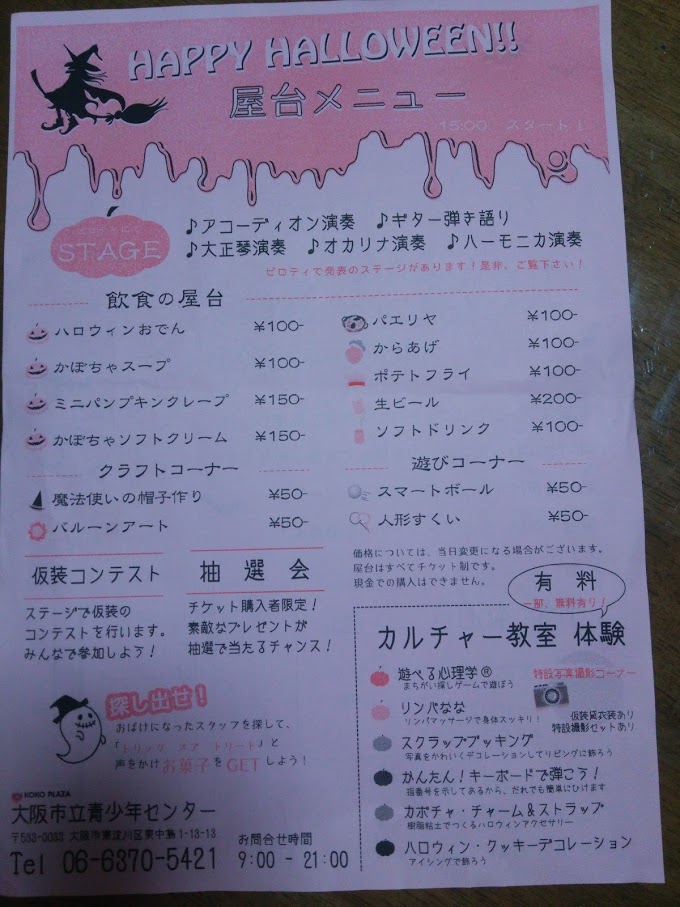 HAPPY HALLOWEEN!!
屋台メニュー
15:00 スタート!
STAGE
♪アコーディオン演奏 ♪ギター弾き語り
♪大正琴演奏 ♪オカリナ演奏 ♪ハーモニカ演奏
ピロティで発表のステージがあります!是非、ご覧下さい!
飲食の屋台
ハロウィンおでん ¥100-
かぼちゃスープ ¥100-
ミニパンプキンクレープ ¥150-
かぼちゃソフトクリーム ¥150-
パエリヤ ¥100-
からあげ ¥100-
ポテトフライ ¥100-
生ビール ¥200-
ソフトドリンク ¥100-
クラフトコーナー
魔法使いの帽子作り ¥50-
バルーンアート ¥50-
遊びコーナー
スマートボール ¥50-
人形すくい ¥50-
価格については、当日変更になる場合がございます。
屋台はすべてチケット制です。
現金での購入はできません。
仮装コンテスト
ステージで仮装の
コンテストを行います。
みんなで参加しよう!
抽選会
チケット購入者限定!
素敵なプレゼントが
抽選で当たるチャンス!
有料
一部、無料有り!
カルチャー教室 体験
遊べる心理学®
まちがい探しゲームで遊ぼう
リンパなな
リンパマッサージで身体スッキリ!
スクラップブッキング
写真をかわいくデコレーションしてリビングに飾ろう
かんたん!キーボードで弾こう!
指番号を示してあるから、だれでも簡単にひけます
カボチャ・チャーム&ストラップ
樹脂粘土でつくるハロウィンアクセサリー
ハロウィン・クッキーデコレーション
アイシングで飾ろう
特設写真撮影コーナー
仮装貸衣装あり
特設撮影セットあり
探し出せ!
おばけになったスタッフを探して、
「トリック オア トリート」と
声をかけお菓子をGETしよう!
KOKO PLAZA
大阪市立青少年センター
〒533-0033 大阪市東淀川区東中島1-13-13
Tel 06-6370-5421
お問合せ時間
9:00 - 21:00